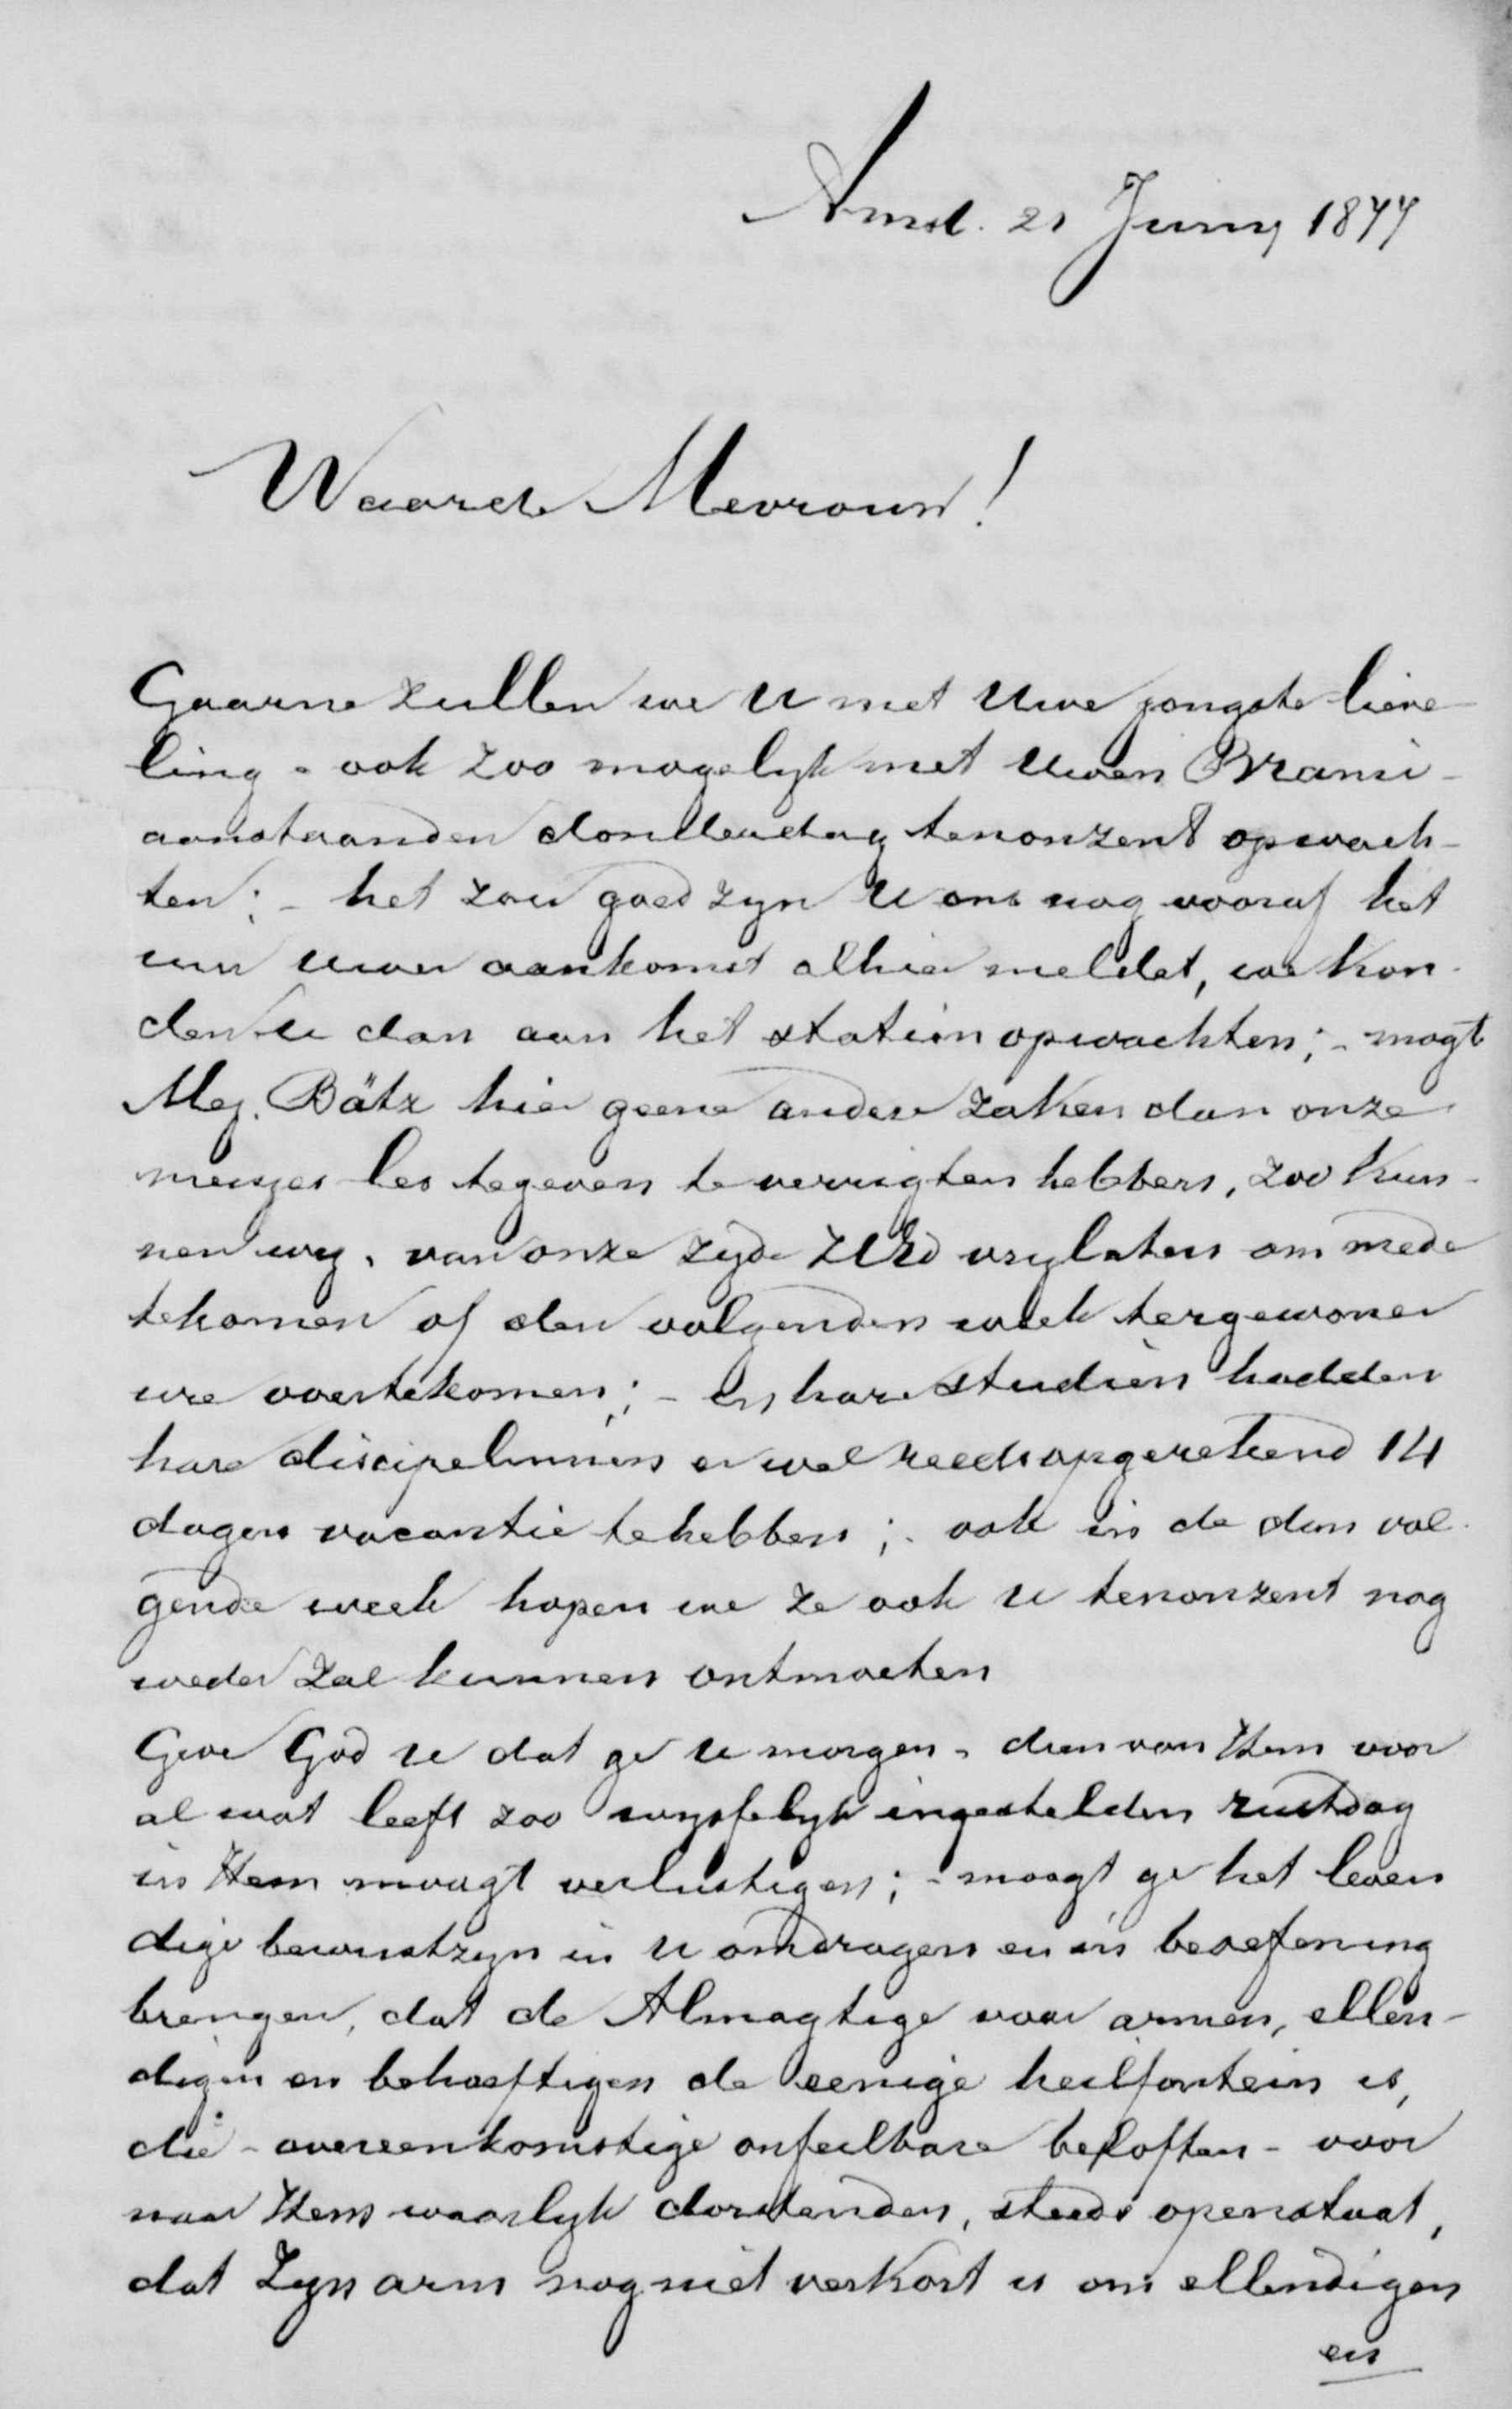 Amst. 21 Juny 1877
Waarde Mevrouw!
Gaarne zullen we U met Uwe jongste lieve-
ling - ook zoo mogelyk met Uwen Frans -
aanstaanden donderdag tenonzent opwach-
ten; - het zou goed zyn U ons nog vooraf het
uur uwer aankomst alhier meldet, we kon-
den U dan aan het station opwachten; - mogt
Mej. Bätz hier geene andere zaken dan onze
meisjes les tegeven te verrigten hebben, zoo kun-
nen wy, van onze zyde ZEd vrylaten om mede
tekomen of den volgenden week tergewoner
ure overtekomen; - en hare studien hadden
hare discipelinnen er wel reeds opgerekend 14
dagen vacantie tehebben; - ook in de dan vol-
gende week hopen we ze ook U tenonzent nog
weder zal kunnen ontmoeten
Geve God U dat ge U morgen - den van Hem voor
al wat leeft zoo wysselyk ingestelden rustdag
in Hem moogt verlustigen; - moogt ge het leven
dige bewustzyn in U omdragen en in beoefening
brengen, dat de Almagtige voor armen, ellen-
digen en behoeftigen de eenige heilfontein is,
die - overeenkomstige onfeilbare beloften - voor
naar Hem waarlyk dorstenden, steeds openstaat,
dat Zyn arm nog niet verkort is om ellendigen
en